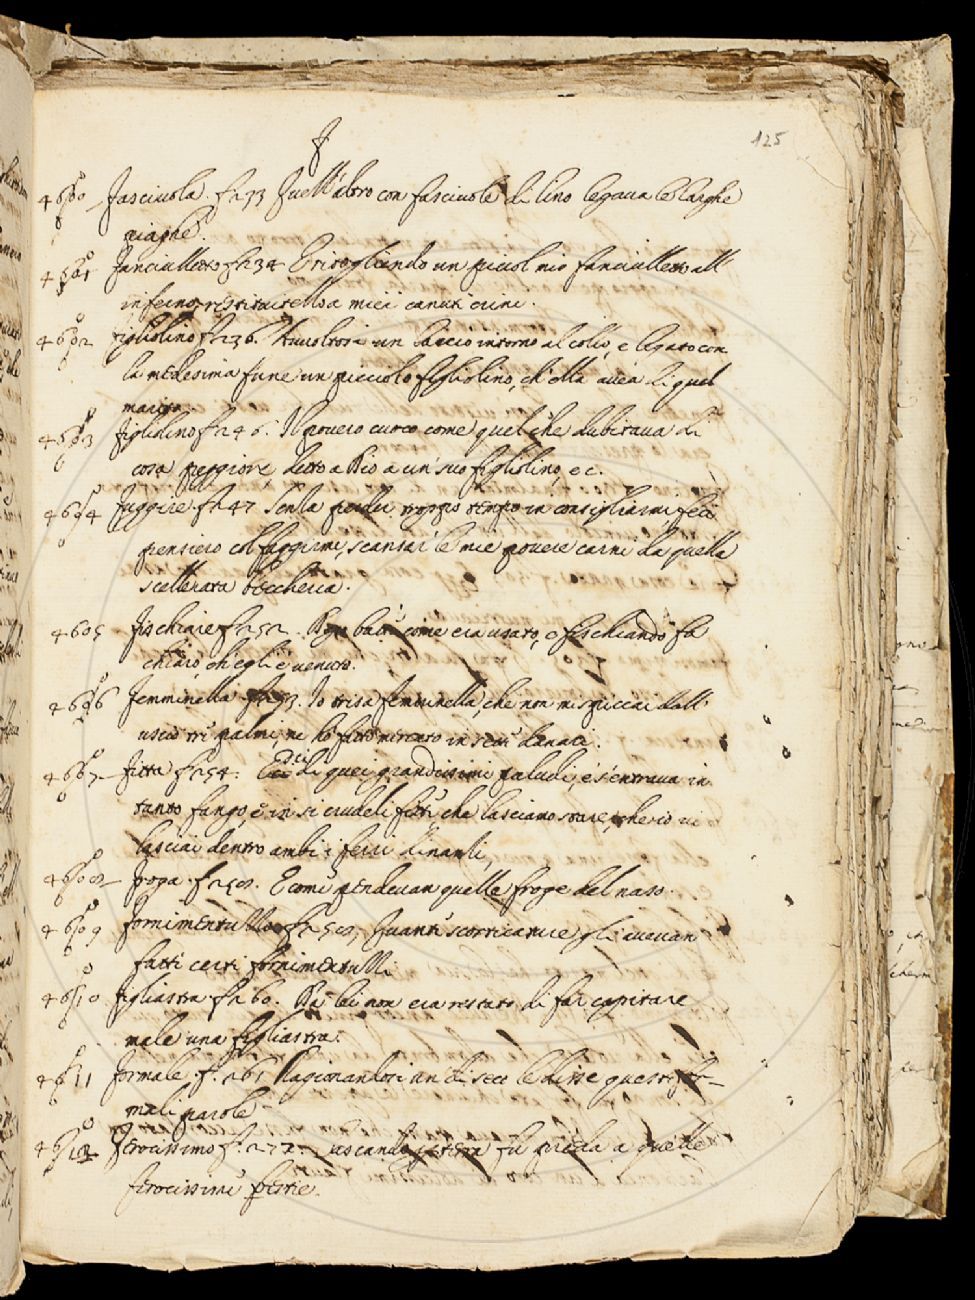 F
125
4600 Fasciuola. f. 233 Quell'altro con fasciuole di lino legaua le larghe
piaghe.
4601 Fanciulletto f. 234 E ritogliendo un picciol mio fanciulletto all'
inferno, restituirello a miei canuti crini.
4602 figliolino f. 236. Auuoltosi un laccio intorno al collo, e legato con
la medesima fune un picciolo figliolino, ch'ella auea di quel
marito,
4603 figliolino f. 246. Il pouero cuoco come quel che dubitaua di
cosa peggiore, detto a Dio a un suo figliolino, ec.
4604 Fuggire f. 247 Senza perder troppo tempo in consigliarmi, feci
pensiero col fuggirmi, scansar le mie pouere carni da quella
scellerata beccheria.
4605 Fischiare f. 252. come era usato, e fischiando fa
chiaro, ch'egli è uenuto.
4606 Femminella f. 253. Io trista femminella, che non mi spiccai dall'
uscio tri palmi, ne ho fitto mercato in sedi danati.
4607 fitta f. 254. di quei grandissimi paludi, e s'entraua in
tanto fango, e in si crudeli fitti che lasciano stare, che io ui
lasciai dentro ambi i ferri dinanzi,
4608 froga. f. 258. E come pendeuan quelle froge del naso.
4609 fornimentuzzo f. 258, Quanti scorticature gli aueuan
fatti certi fornimentuzzi
4610 figliastra f. 260. Da lei non era restato di far capitare
male una figliastra.
4611 formale f. 261 Ragionandosi un di seco le disse queste for-
mali parole
4612 ferocissimo f. 277. fu preda a quelle
ferocissime bestie.